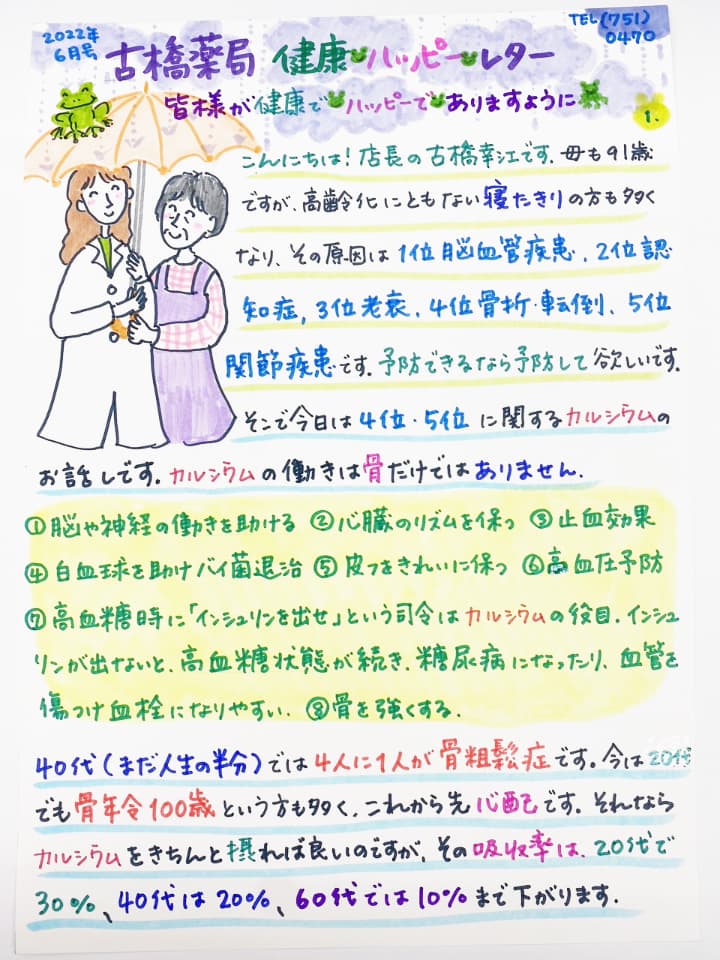 2022年
6月号
古橋薬局 健康ハッピーレター
TEL(751)
0470
皆様が健康でハッピーでありますように
1.
こんにちは！店長の古橋幸江です。母も91歳
ですが、高齢化にともない寝たきりの方も多く
なり、その原因は1位脳血管疾患、2位認
知症、3位老衰、4位骨折・転倒、5位
関節疾患です。予防できるなら予防して欲しいです。
そこで今日は4位・5位に関するカルシウムの
お話しです。カルシウムの働きは骨だけではありません。
①脳や神経の働きを助ける ②心臓のリズムを保つ ③止血効果
④白血球を助けバイ菌退治 ⑤皮フをきれいに保つ ⑥高血圧予防
⑦高血糖時に「インシュリンを出せ」という司令はカルシウムの役目。インシュ
リンが出ないと、高血糖状態が続き、糖尿病になったり、血管を
傷つけ血栓になりやすい。⑧骨を強くする。
40代(まだ人生の半分)では4人に1人が骨粗鬆症です。今は20代
でも骨年令100歳という方も多く、これから先心配です。それなら
カルシウムをきちんと摂れば良いのですが、その吸収率は、20代で
30%、40代は20%、60代では10%まで下がります。